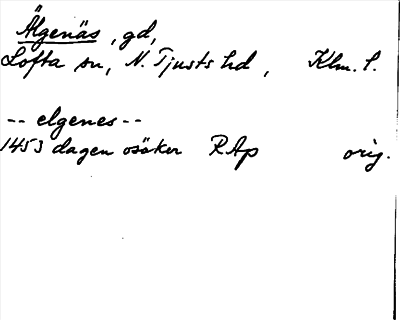 Älgenäs, gd,
Lofta sn, N. Tjusts hd, Klm. l.
-- elgenes --
1453 dagen osäker RAp orig.